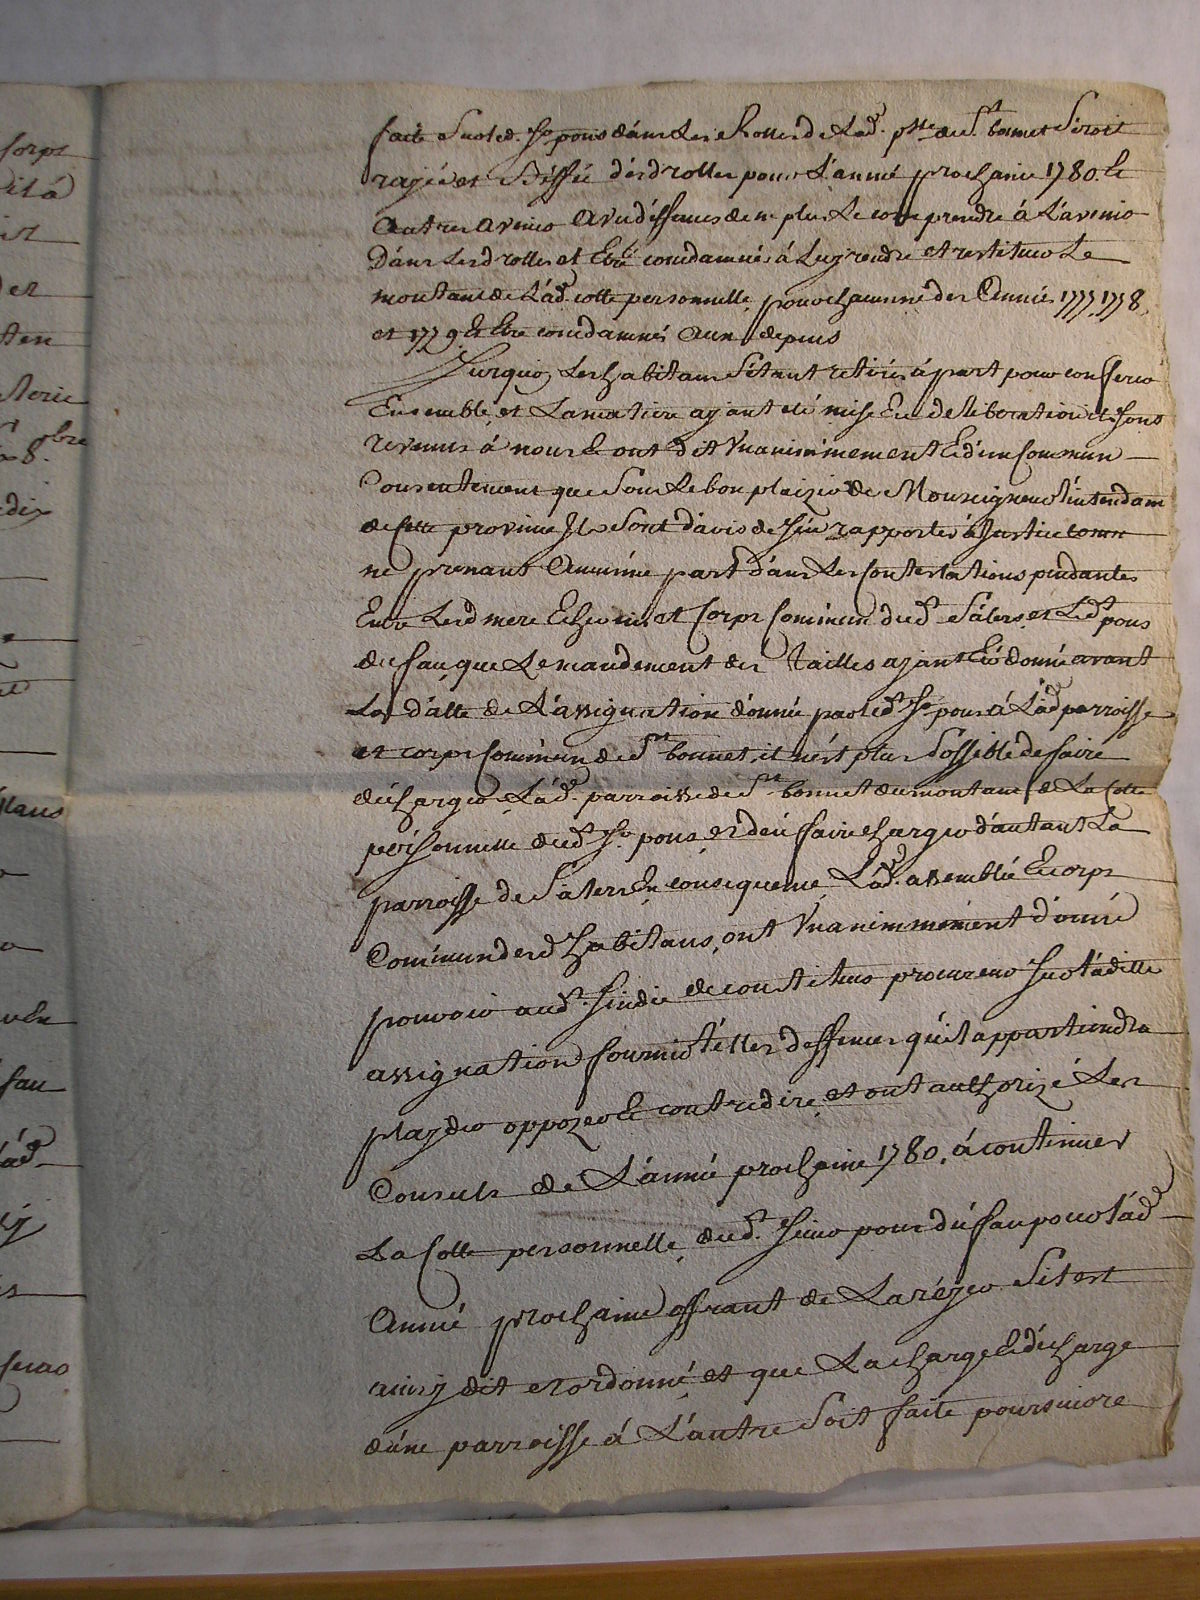 faite Sur led. Sr. pons dans Les Rolles de Lad. psse de St. bonnet Seroit
rayée et Biffée desd rolles pour L'année prochaine 1780. Et
Autres avenir avec deffences de ne plus Le comprendre à L'avenir
Dans Lesd rolles et Etre condamnés à Luy rendre et restituer Le
montant de Lad. cotte personnelle, pour chacunne des Année 1777, 1778,
et 1779. Et Etre condamnés aux depens
Surquoy Les habitans S'étant retirés à part pour conferer
Ensemble, et La matiere ayant été mise En deliberation ils Sont
revenus à nous Et ont dit Unanimement Et d'un Commun
Consentement que Sous Le bon plaizir de Monseigneur L'intendant
de Cette province Ils Sont d'avis de S'en rapporter à Justice comme
ne prenant Aucunne part dans Les Contestations pendantes
Entre Lesd mere Echevins et Corps Commun dud. Salers, et Led. pons
du fau que Le mandement des Tailles ayant Eté donné avant
La datte de L'assignation donnée par led. Sr. pons à Lad parroisse
et corps Commun de St. bonnet, il n'est plus Possible de faire
décharger Lad. parroisse de St. bonnet du montant de La Cotte
personnelle dud. Sr. pons, et d'en faire charger d'autant La
parroisse de Salers, En consequence, Lad. assemblée Et corps
Commun desd habitans, ont Unanimmement donné
pouvoir aud. Sindic de constituer procureur Sur Laditte
assignation fournir telles deffences qu'il appartiendra
playder opposer Et contredire, et ont authorizé Les
Consuls de L'année prochaine 1780, à continuer
La Cotte personnelle, dud. Sieur pons du fau pour Lad.
Année prochaine offrant de La réjer S'il est
ainsy dit et ordonné, et que La charge Et décharge
d'une parroisse à L'autre Soit faite poursuivre